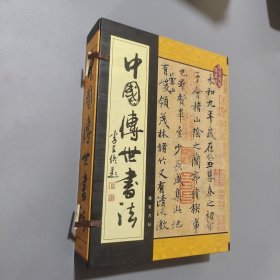 永和九年歲在癸丑暮春之初會
于會稽山陰之蘭亭脩稧事
也群賢畢至少長咸集此地
有崇山峻領茂林脩竹又有清流激
中國傳世書法
中國傳世書法